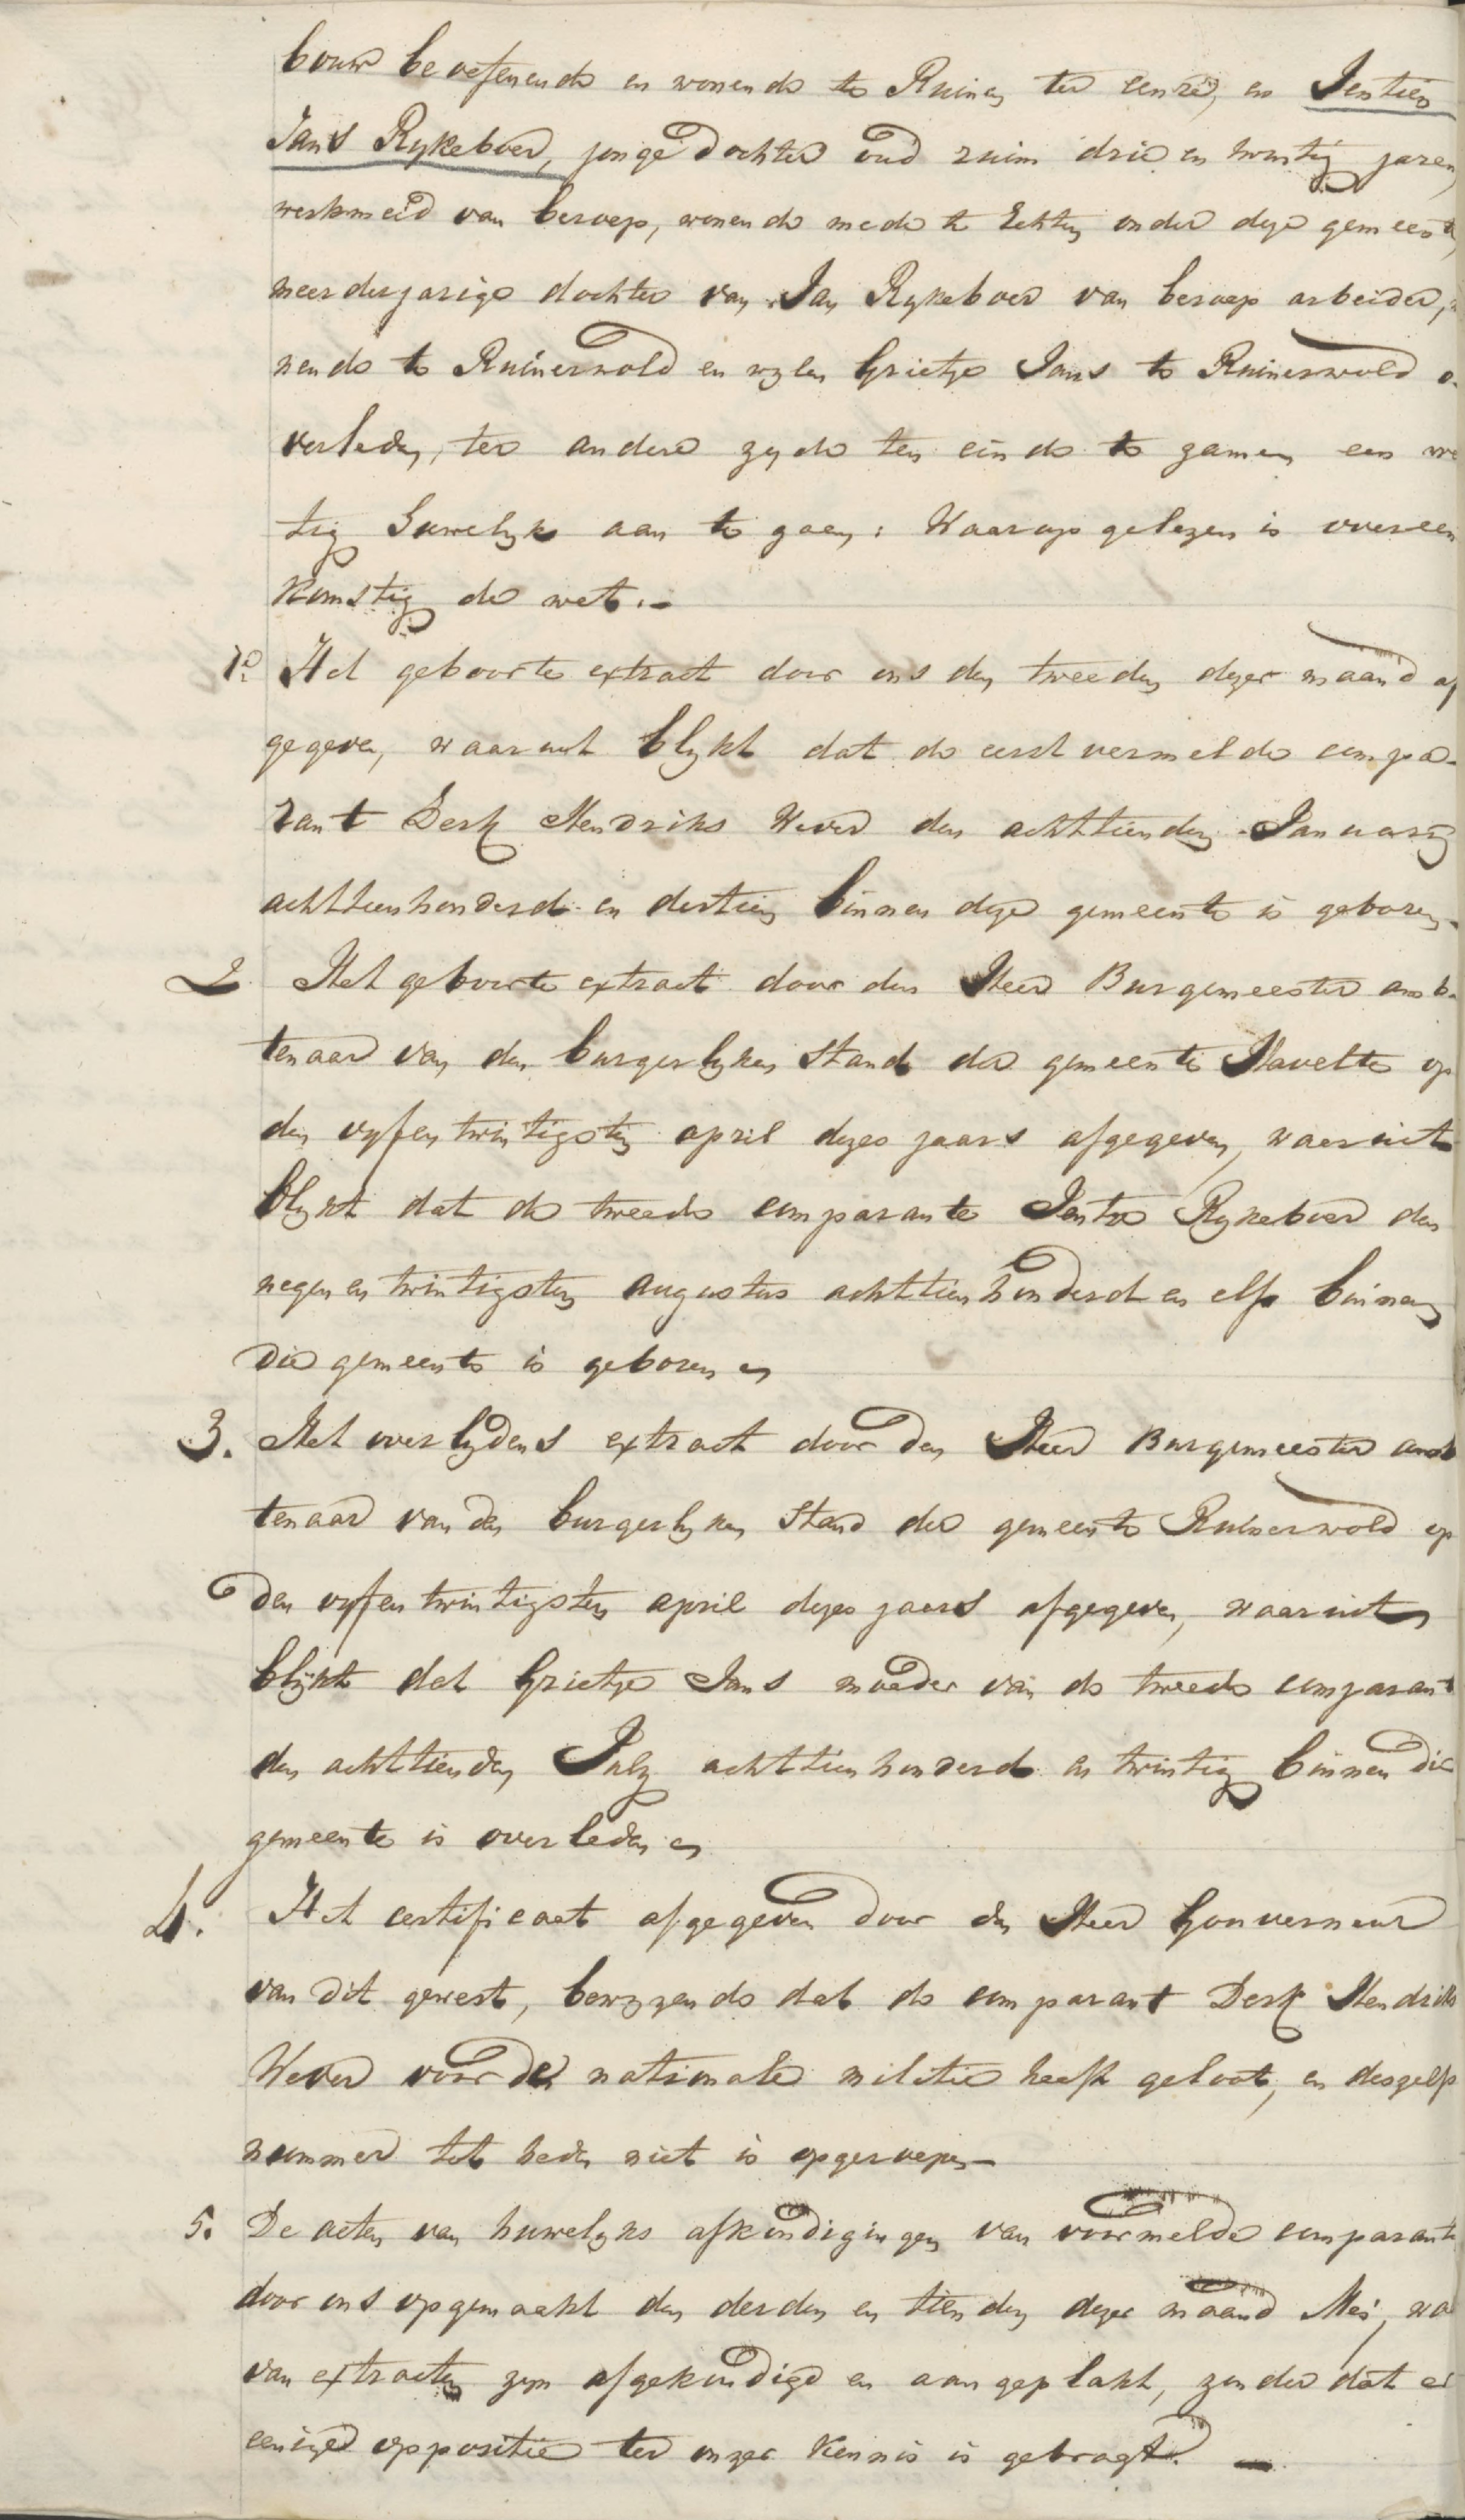 bouw beoefenende en wonende te Ruinen ter eenre, en Jentien
Jans Rykeboer, jonge dochter oud ruim drie en twintig jaren,
werkmeid van beroep, wonende mede te Echten onder deze gemeente,
meerderjarige dochter van Jan Rykeboer van beroep arbeider,
nende te Ruinerwold en wylen Grietje Jans te Ruinerwold o-
verleden, ter andere zyde ten einde te zamen een we
tig Huwelyk aan te gaan; Waarop gelezen is overeen
komstig de wet.-
1o. Het geboorte extract door ons den tweeden dezer maand af
gegeven, waaruit blykt dat de eerst vermelde compa-
rant Derk Hendriks Wever den achttienden January
achttienhonderd en dertien binnen deze gemeente is geboren-
2 Het geboorte extract door den Heer Burgemeester amb-
tenaar van den burgerlyken Stand der gemeente Havelte op
den vyfentwintigsten april dezes jaars afgegeven, waaruit
blykt dat de tweede comparante Jentje Rykeboer den
negenentwintigsten augustus achttienhonderd en elf binnen
die gemeente is geboren en
3. Het overlydens extract door den Heer Burgemeester amb
tenaar van den burgerlyken Stand der gemeente Ruinerwold op
den vyfentwintigsten april dezes jaars afgegeven, waaruit
blykt dat Grietje Jans moeder van de tweede comparant
den achttienden July achttienhonderd en twintig binnen die
gemeente is overleden en
4. Het certificaat afgegeven door den Heer Gouverneur
van dit gewest, bewyzende dat de comparant Derk Hendriks
Wever voor de nationale militie heeft geloot, en deszelfs
nummer tot heden niet is opgeroepen-
5. De acten van huwelyks afkondigingen van voormelde comparante
door ons opgemaakt den derden en tienden dezer maand Mei, wa
van extracten zyn afgekondigd en aangeplakt, zonder dat er
eenige oppositie ter onzer kennis is gebragt. -